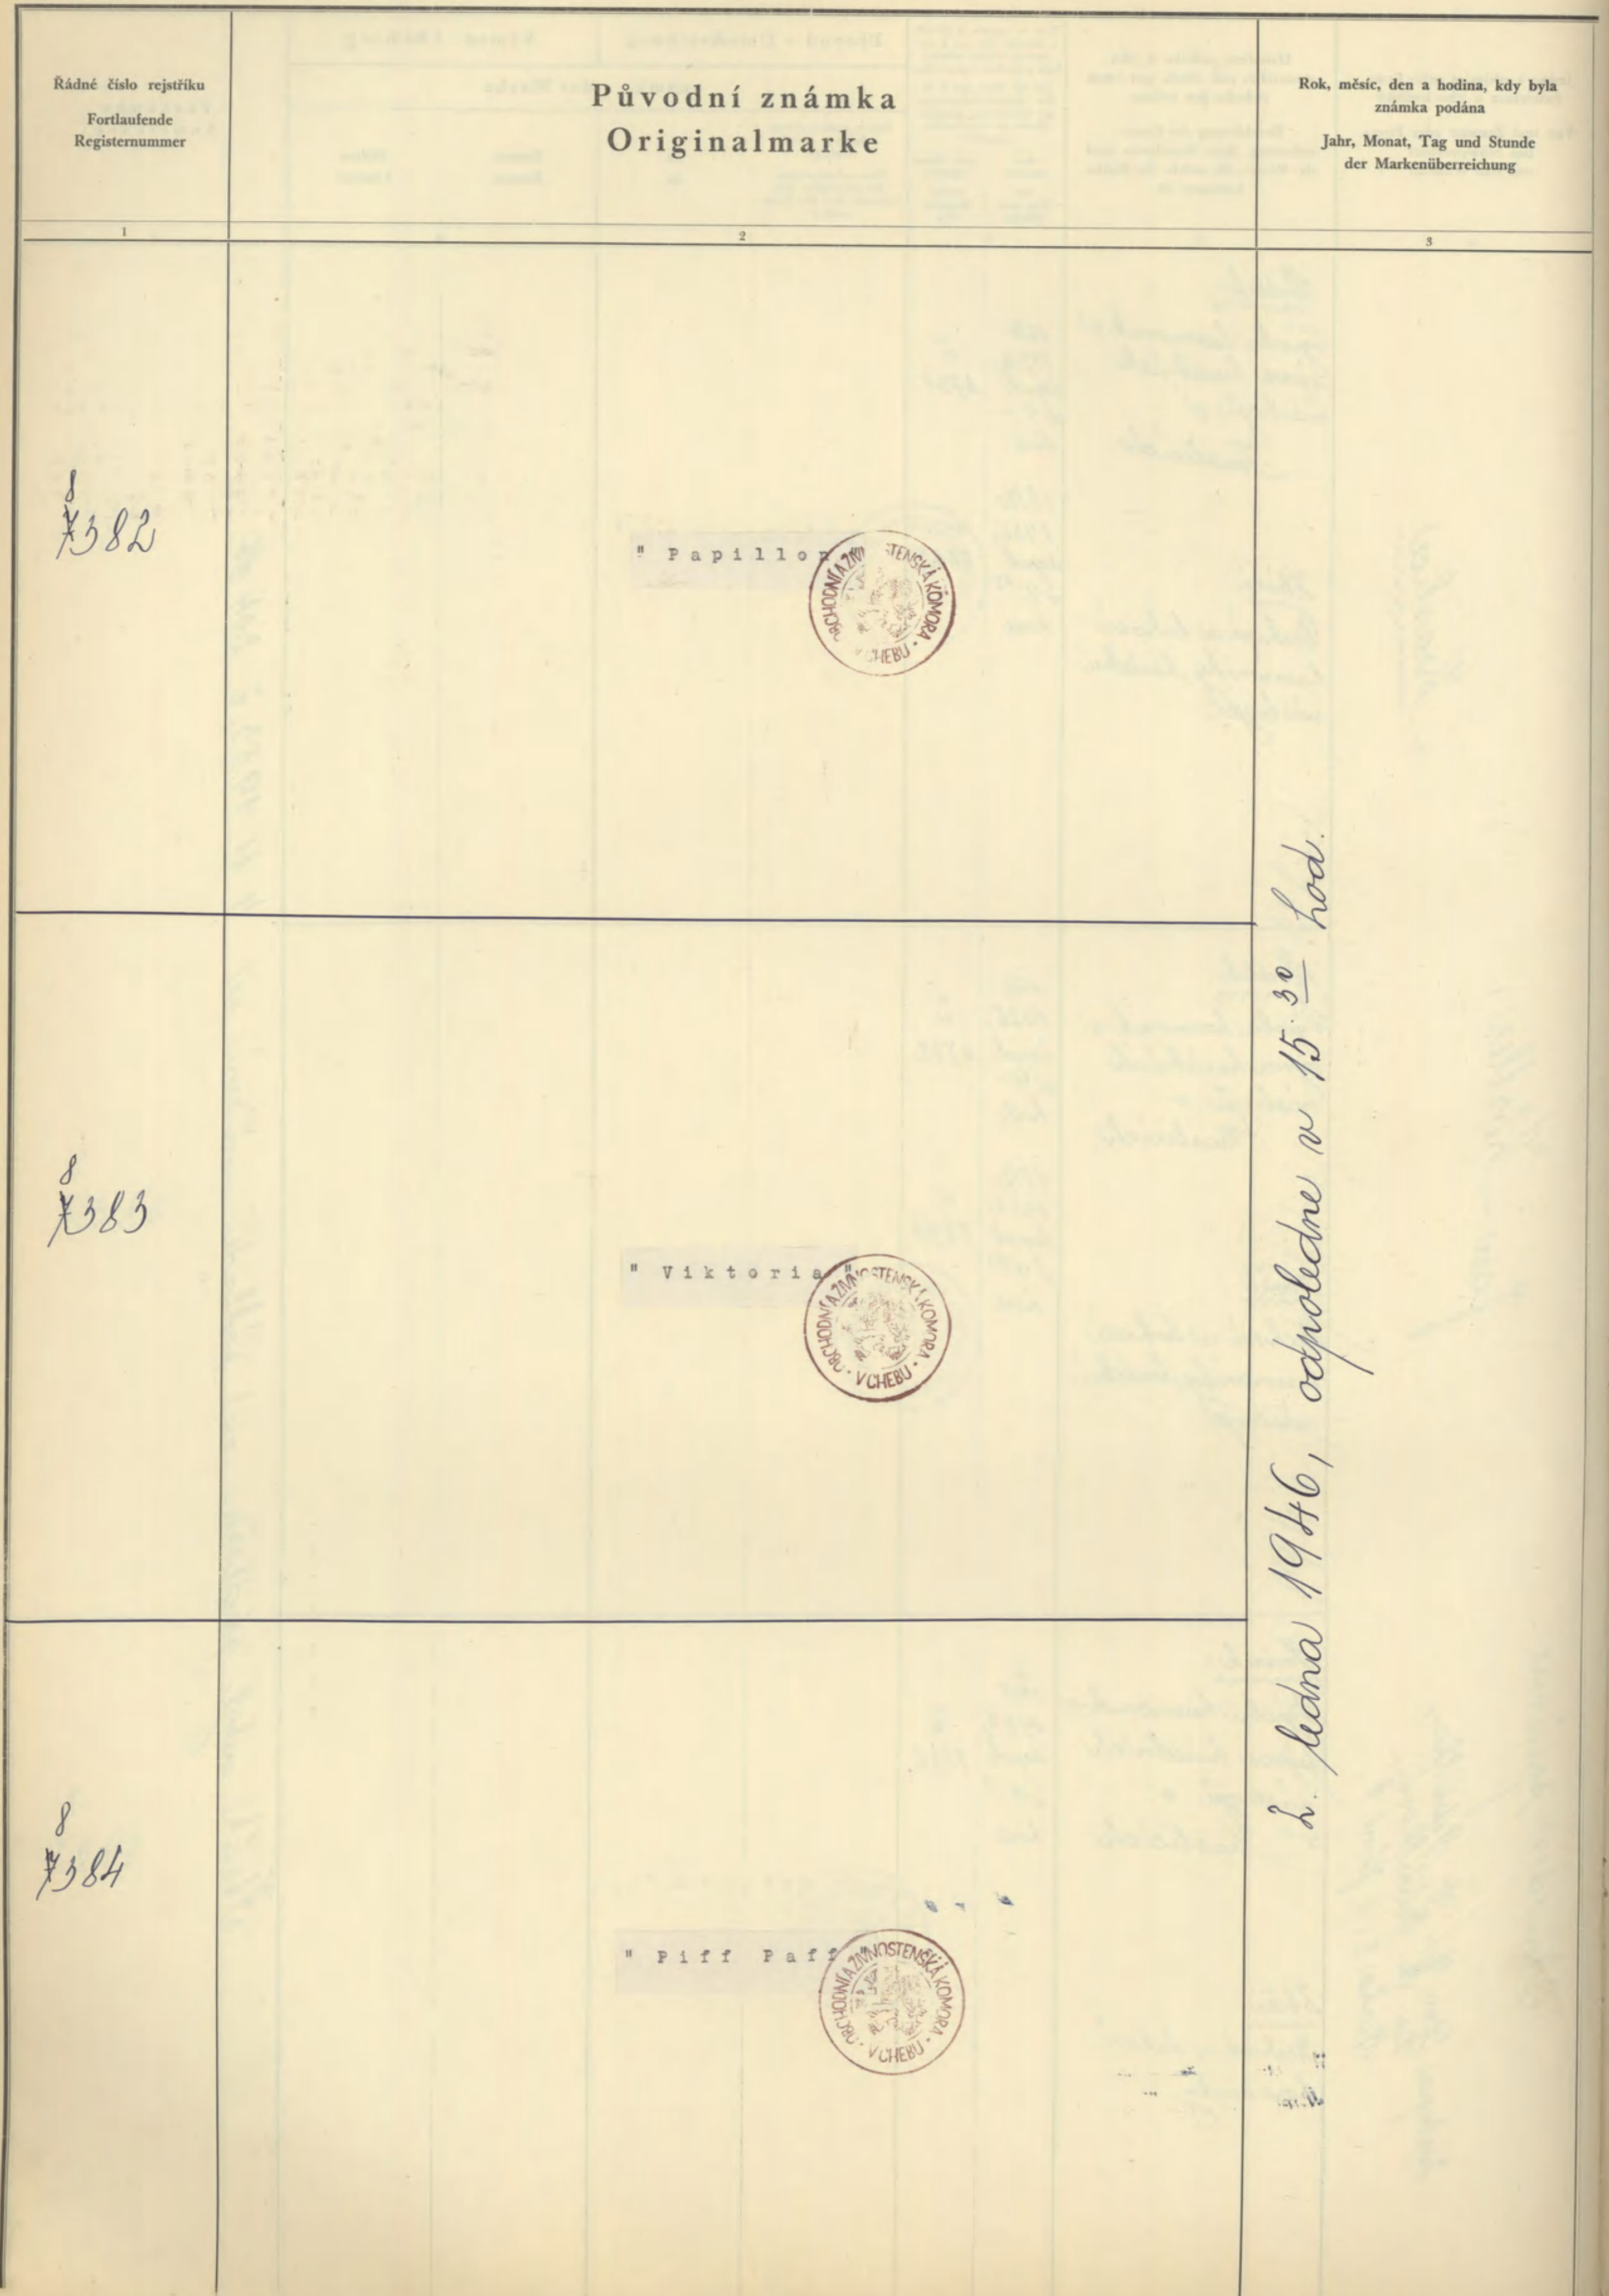 Řádné číslo rejstříku
Fortlaufende
Registernummer
Původní známka
Originalmarke
Rok, měsíc, den a hodina, kdy byla
známka podána
Jahr, Monat, Tag und Stunde
der Markenüberreichung
1
2
3
8
7382
" Papillon
OBCHODNÍ A ŽIVNOSTENSKÁ KOMORA · V CHEBU ·
8
7383
" Viktoria "
OBCHODNÍ A ŽIVNOSTENSKÁ KOMORA · V CHEBU ·
8
7384
" Piff Paff "
OBCHODNÍ A ŽIVNOSTENSKÁ KOMORA · V CHEBU ·
2. ledna 1946, odpoledne v 15.30 hod.